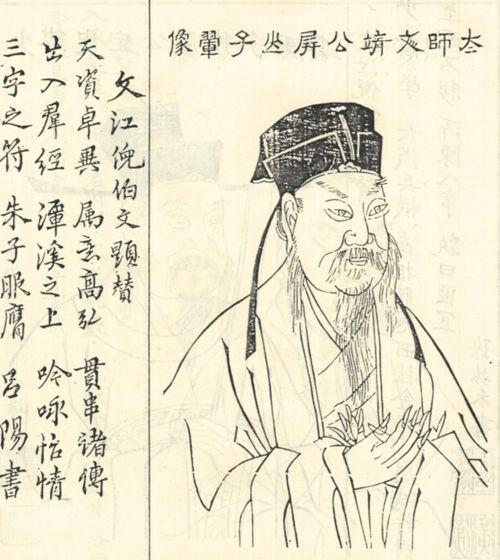 太師文靖公屏山子翬像
文江倪伯文顯贊
天資卓異 属意高弘 貫串诸傳
出入羣經 潭溪之上 吟咏怡情
三字之符 朱子服膺 呂陽書